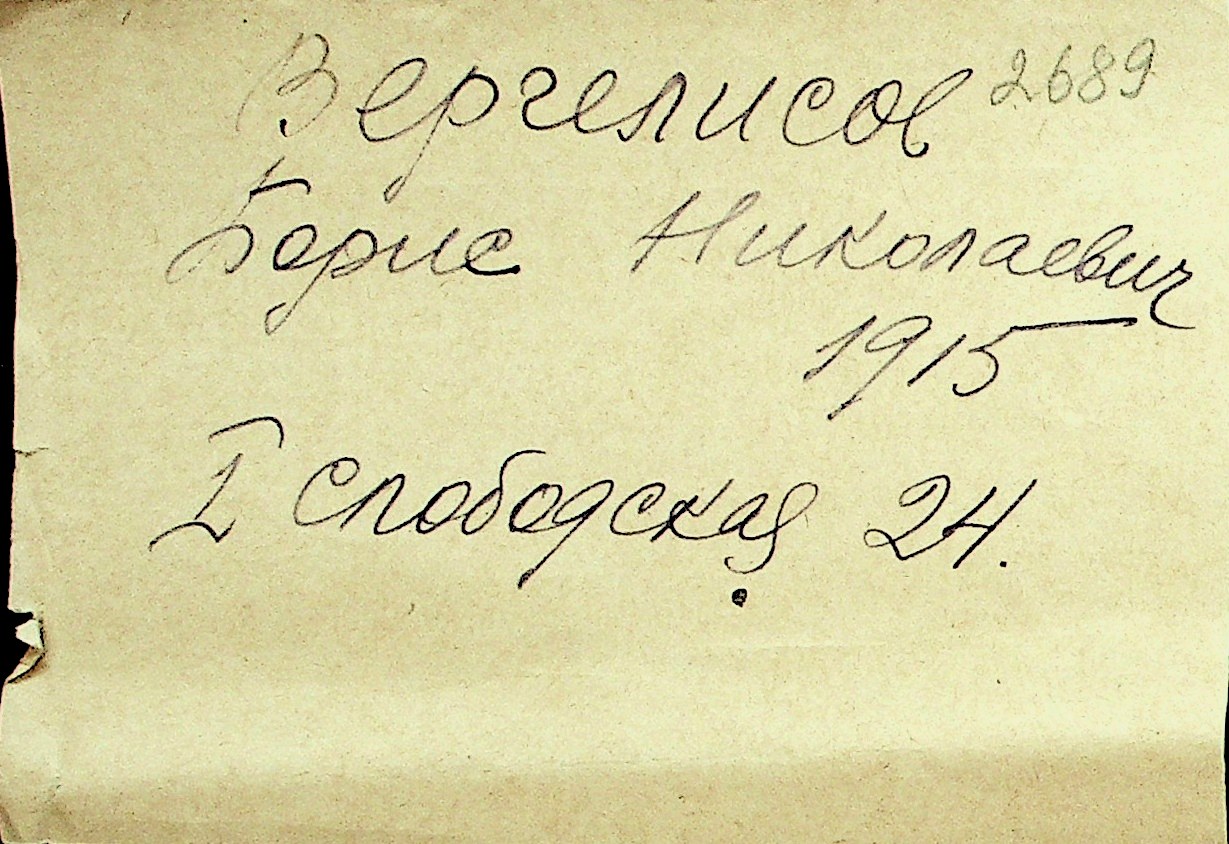 Вергелисов 2689
Борис Николаевич
1915
I Слободская 24.